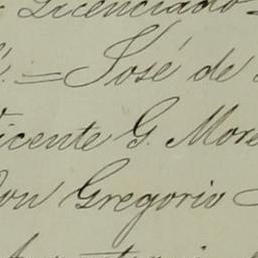 Licenciado
. = José de
icente G. More
on Gregorio